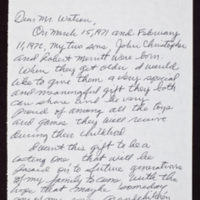 Dear Mr. Watson,
On March 15, 1971 and February
11, 1975, my two sons, John Christopher
and Robert Merritt were born.
When they get older I would
like to give them a very special
and meaningful gift they both
can share and be very
proud of among all the toys
and games they will receive
during their childhood.
I want this gift to be a
lasting one that will be
passed on to future generations
of my family to come. With the
hope that maybe someday
one of my grandchildren